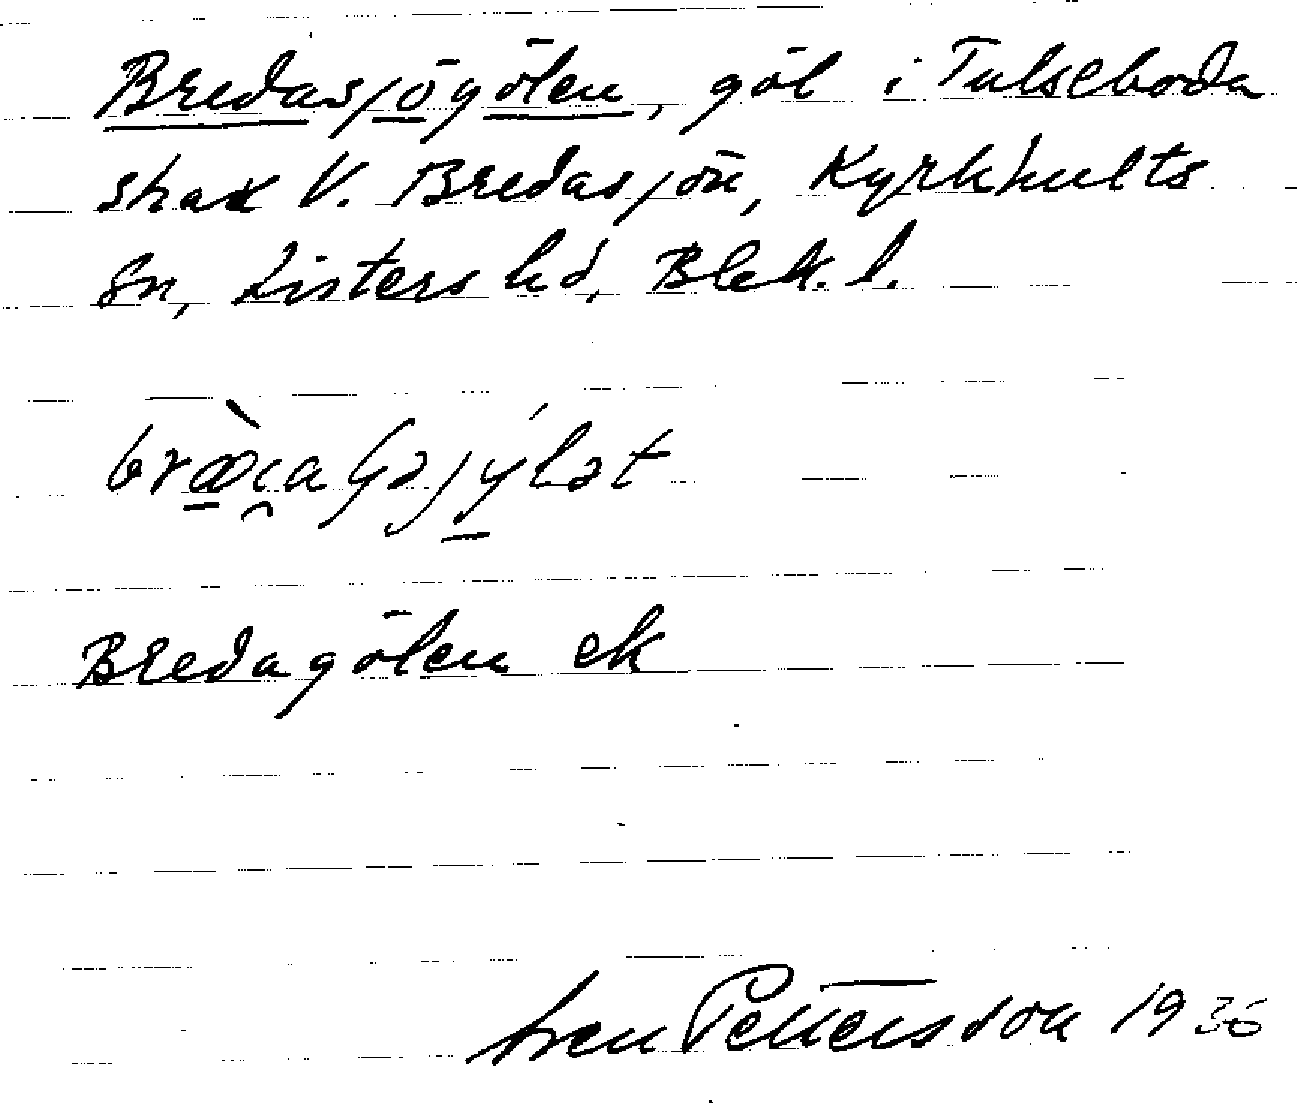 Bredasjögölen, göl i Tulseboda
strax V. Bredasjön, Kyrkhults
sn, Listers hd, Blek. l.
Bredagölen ek
Sven Pettersson 1936